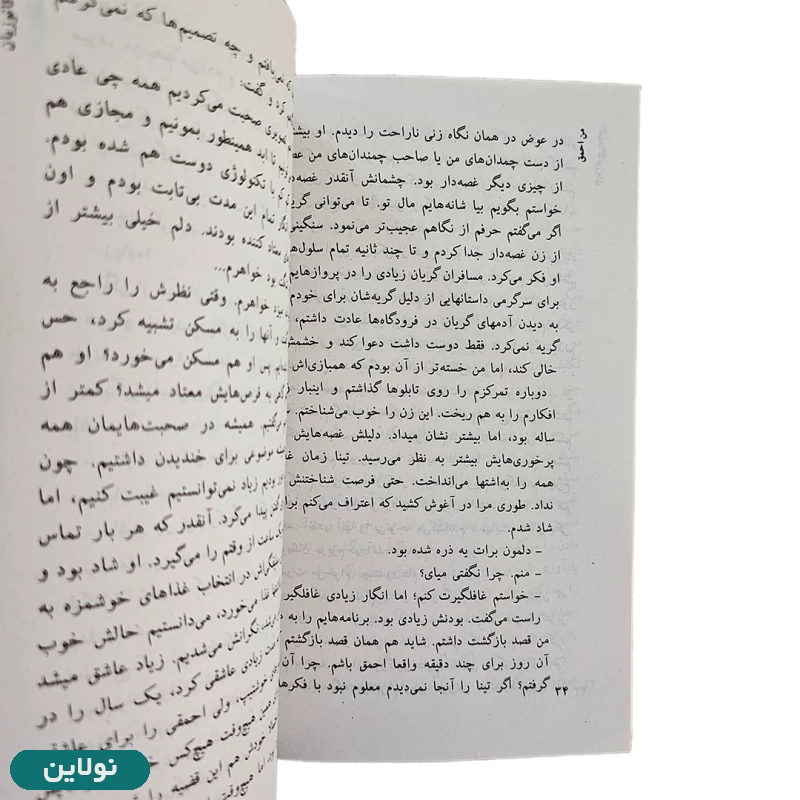 من احمق
در عوض در همان نگاه زنی ناراحت را دیدم. او بیشتر
از دست چمدان‌های من یا صاحب چمندان‌های من
از چیزی دیگر غصه‌دار بود. چشمانش آنقدر
خواستم بگویم بیا شانه‌هایم مال تو. تا می‌توانی
اگر می‌گفتم حرفم از نگاهم عجیب‌تر می‌نمود. سنگینی
از زن غصه‌دار جدا کردم و تا چند ثانیه تمام
او فکر می‌کرد. مسافران گریان زیادی را در پروازهایم
برای سرگرمی داستانهایی از دلیل گریه‌شان برای خودم
به دیدن آدمهای گریان در فرودگاه‌ها عادت داشتم،
گریه نمی‌کرد. فقط دوست داشت دعوا کند و خشمش
خالی کند، اما من خسته‌تر از آن بودم که همبازی‌اش
دوباره تمرکزم را روی تابلوها گذاشتم و اینبار
افکارم را به هم ریخت. این زن را خوب می‌شناختم.
ساله بود، اما بیشتر نشان میداد. دلیلش غصه‌هایش
پرخوری‌هایش بیشتر به نظر می‌رسید. تینا زمان
همه را به‌اشتها می‌انداخت. حتی فرصت شناختنش
نداد. طوری مرا در آغوش کشید که اعتراف می‌کنم
شاد شدم.
- دلمون برات یه ذره شده بود.
- منم. چرا نگفتی میای؟
- خواستم غافلگیرت کنم؛ اما انگار زیادی
راست می‌گفت. بودنش زیادی بود. برنامه‌هایم را به
من قصد بازگشت داشتم. شاید هم همان قصد بازگشتم
آن روز برای چند دقیقه واقعا احمق باشم. چرا آن
گرفتم؟ اگر تینا را آنجا نمی‌دیدم معلوم نبود با
۳۴
و چه تصمیم‌ها که
کرد و گفت:
صحبت می‌کردیم همه چی عادی
تا ابد همینطور بمونیم و مجازی هم
با تکنولوژی دوست هم شده بودم.
تمام این مدت بی‌تابت بودم و اون
معتاد کننده بودند. دلم خیلی بیشتر از
بود خواهرم...
خواهرم. وقتی نظرش را راجع به
و آنها را به مسکن تشبیه کرد، حس
پس او هم مسکن می‌خورد؟ او هم
به قرص‌هایش معتاد میشد؟ کمتر از
همیشه در صحبت‌هایمان همه
موضوعی برای خندیدن داشتیم. چون
بودیم زیاد نمی‌توانستیم غیبت کنیم، اما
پیدا می‌کرد. آنقدر که هر بار تماس
ساعت از وقتم را می‌گیرد. او شاد بود و
در انتخاب غذاهای خوشمزه به
غذا می‌خورد، می‌دانستیم حالش خوب
نگرانش می‌شدیم. زیاد عاشق میشد
زیادی عاشقی کرد، یک سال را در
ولی احمقی را برای عاشقی
هیچ‌وقت هیچ‌کس
خودش هم این قضیه را
نولاین